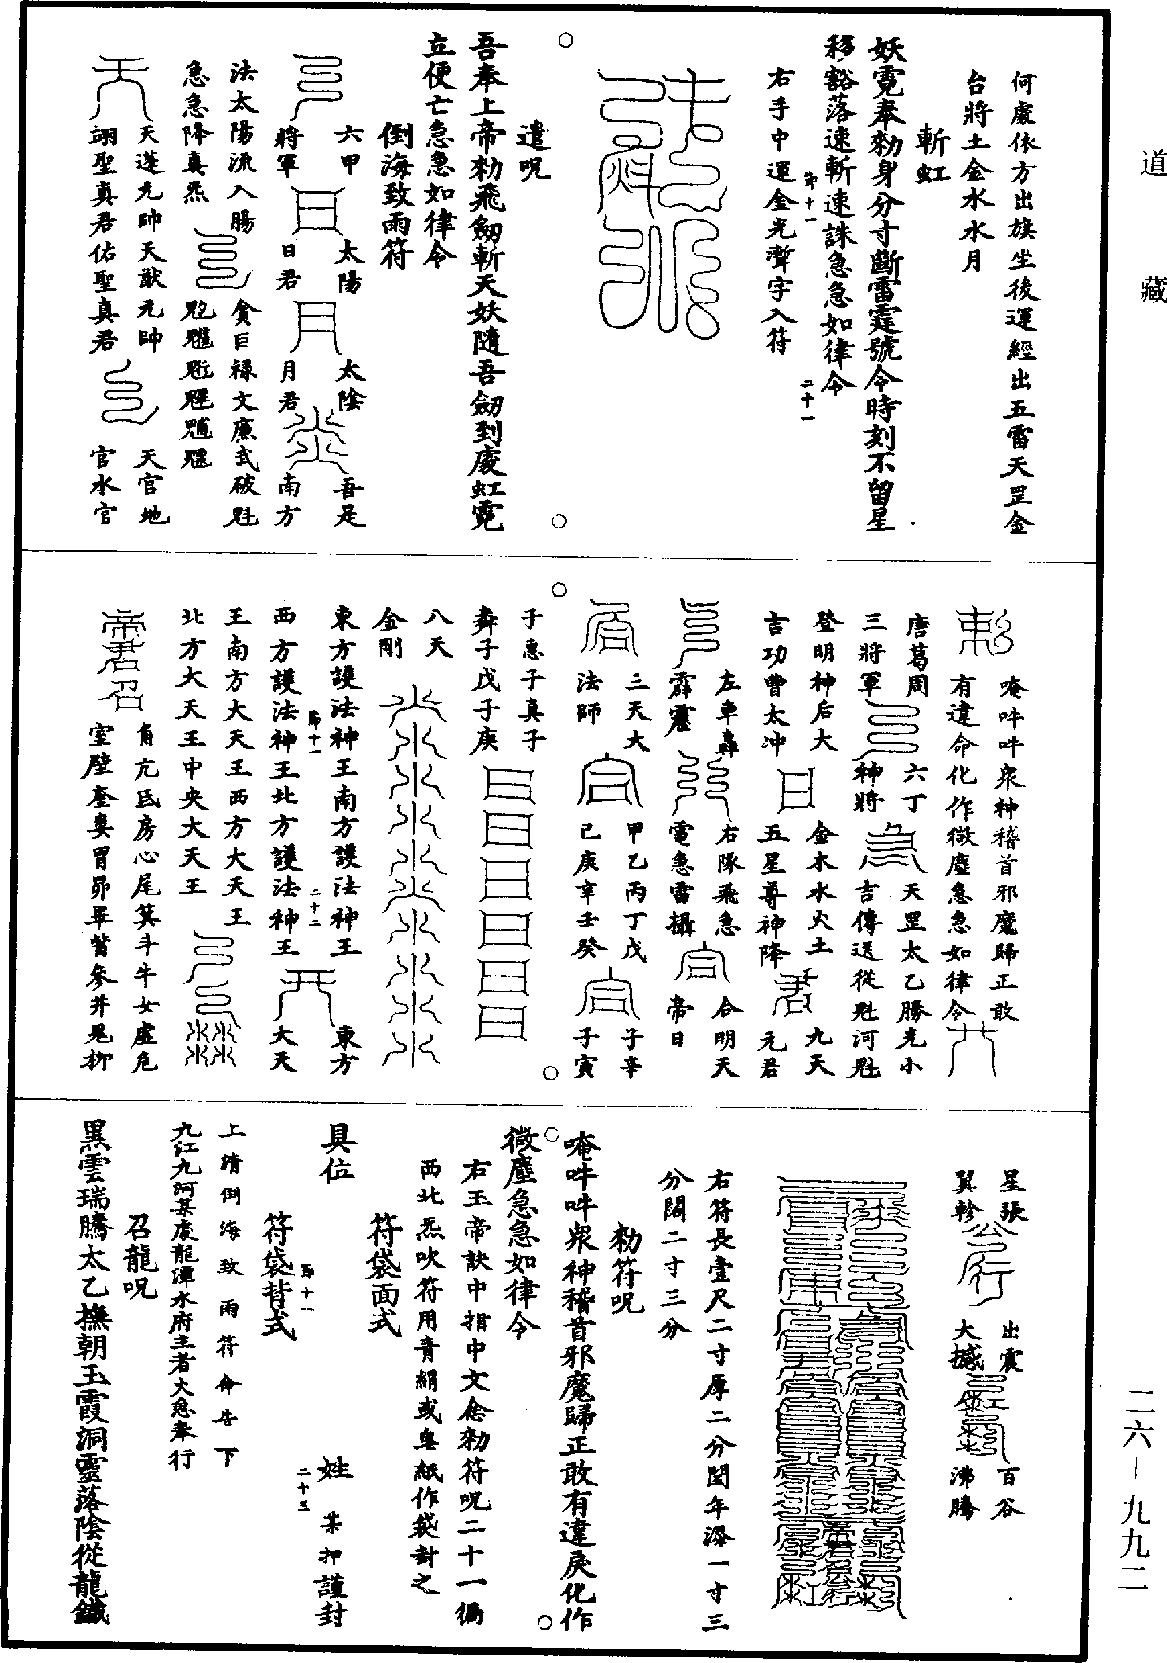 道藏
何處依方出旗坐後運經出五雷天罡金
台將土金水水月
斬虹
妖霓奉勑身分寸斷雷霆號令時刻不留星
移豁落速斬速誅急急如律令
右手中運金光霽字入符
遣呪
吾奉上帝勑飛劒斬天妖隨吾劒到處虹霓
立便亡急急如律令
倒海致雨符
六甲
將軍
太陽
日君
太陰
月君
吾是
南方
法太陽流入腸
急急降真炁
貪巨祿文廉武破魁
天蓬元帥天猷元帥
翊聖真君佑聖真君
天官地
官水官
唵吽吽衆神稽首邪魔歸正敢
有違命化作微塵急急如律令
唐葛周
三將軍
六丁
神將
天罡太乙勝光小
吉傳送從魁河魁
登明神后大
吉功曹太冲
金木水火土
五星尊神降
九天
元君
左車轟
霹靂
右隊飛急
電急雷攝
合明天
帝日
三天大
法師
甲乙丙丁戊
己庚辛壬癸
子辛
子寅
子惠子真子
彝子戊子庚
八天
金剛
東方護法神王南方護法神王
西方護法神王北方護法神王
東方
大天
王南方大天王西方大天王
北方大天王中央大天王
角亢氐房心尾箕斗牛女虛危
室壁奎婁胃昴畢觜參井鬼柳
星張
翼軫
出震
大撼
百谷
沸騰
右符長壹尺二寸厚二分閏年添一寸三
分闊二寸三分
勑符呪
唵吽吽衆神稽首邪魔歸正敢有違戾化作
微塵急急如律令
右玉帝訣中指中文念勑符呪二十一徧
西北炁吹符用青絹或皂紙作袋封之
符袋面式
具位 姓 某押謹封
符袋背式
上請倒海致雨符命告下
九江九河某處龍潭水府主者火急奉行
召龍呪
黑雲瑞騰太乙撫朝玉霞洞靈落陰從龍鐵
二六—九九二